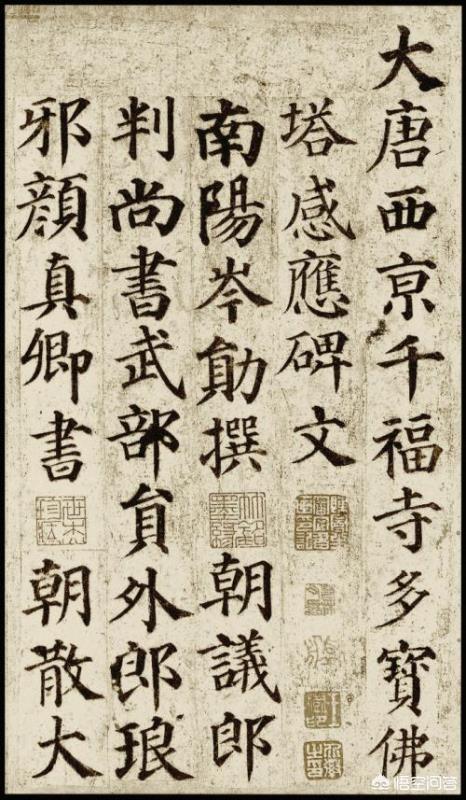 大唐西京千福寺多寶佛
塔感應碑文
南陽岑勛撰 朝議郎
判尚書武部員外郎琅
邪顏真卿書 朝散大
悟空问答